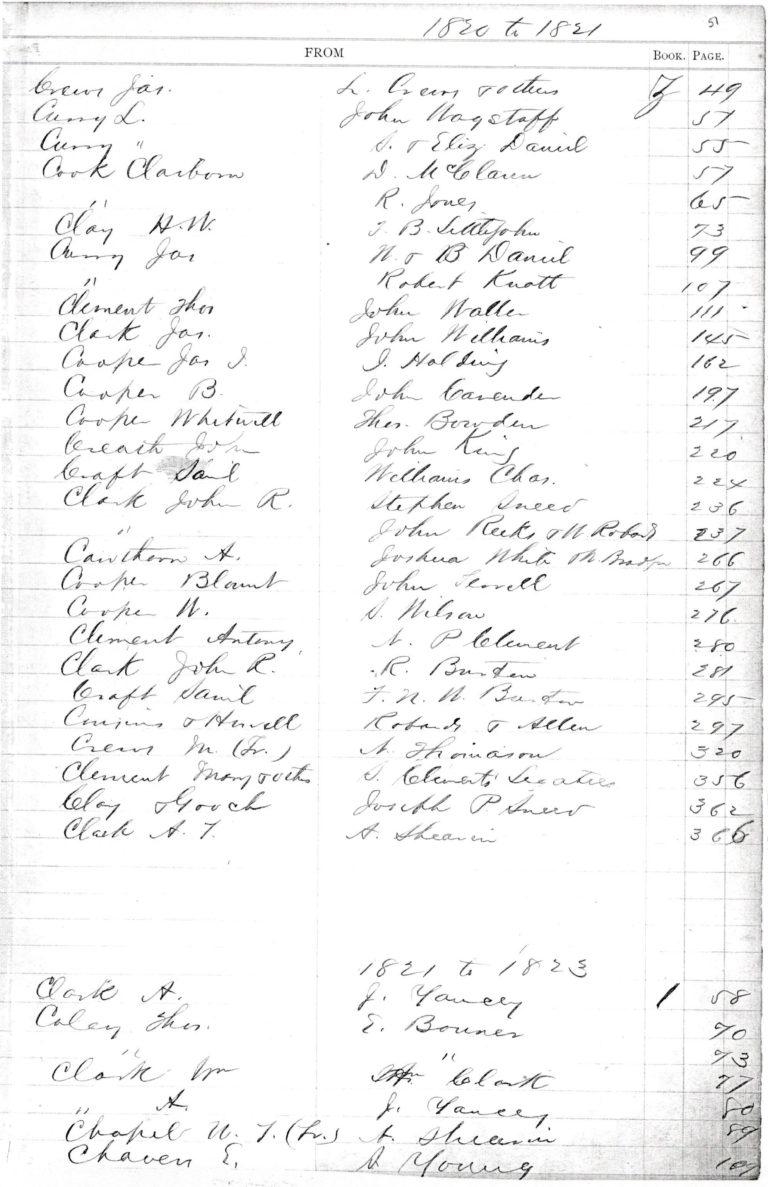 51
1820 to 1821
FROM BOOK. PAGE.
Crews Jas. L. Crews & others Z 49
Curry L. John Wagstaff 51
Curry " S. & Eliz Daniel 55
Cook Claiborn D. McClaren 57
" R. Jones 65
Clay H.W. T. B. Littlejohn 73
Curry Jas W. & B Daniel 99
" Robert Knott 107
Clement Thos John Waller 111
Clark Jas. John Williams 145
Cooper Jas J. I. Holding 162
Cooper B. John Cavender 197
Cooper Whitwell Thos. Bowden 217
Creath John John King 220
Craft Saml Williams Chas. 224
Clark John R. Stephen Sneed 236
" John Reeks & W Robards 237
Cawthorn A. Joshua White 266
Cooper Blount John 267
Cooper W. S. Wilson 276
Clement Antony N. P Clement 280
Clark John R. R. Burton 281
Craft Saml F. N. W. Burton 295
Cousins & Howell Robards & Allen 297
Crews M. (Tr.) N. Thomason 320
Clement Mary & oths S. Clements Legatees 356
Clay & Gooch Joseph P Sneed 362
Clark A. T. A. Shearin 366
1821 to 1823
Clark A. J. Yancey 1 58
Coley Thos. E. Bonner 70
" " 73
Clark Wm Clark 77
" A. J. Yancey 80
Chapel W. T. (Tr.) A. Shearin 89
Chaven E. Young